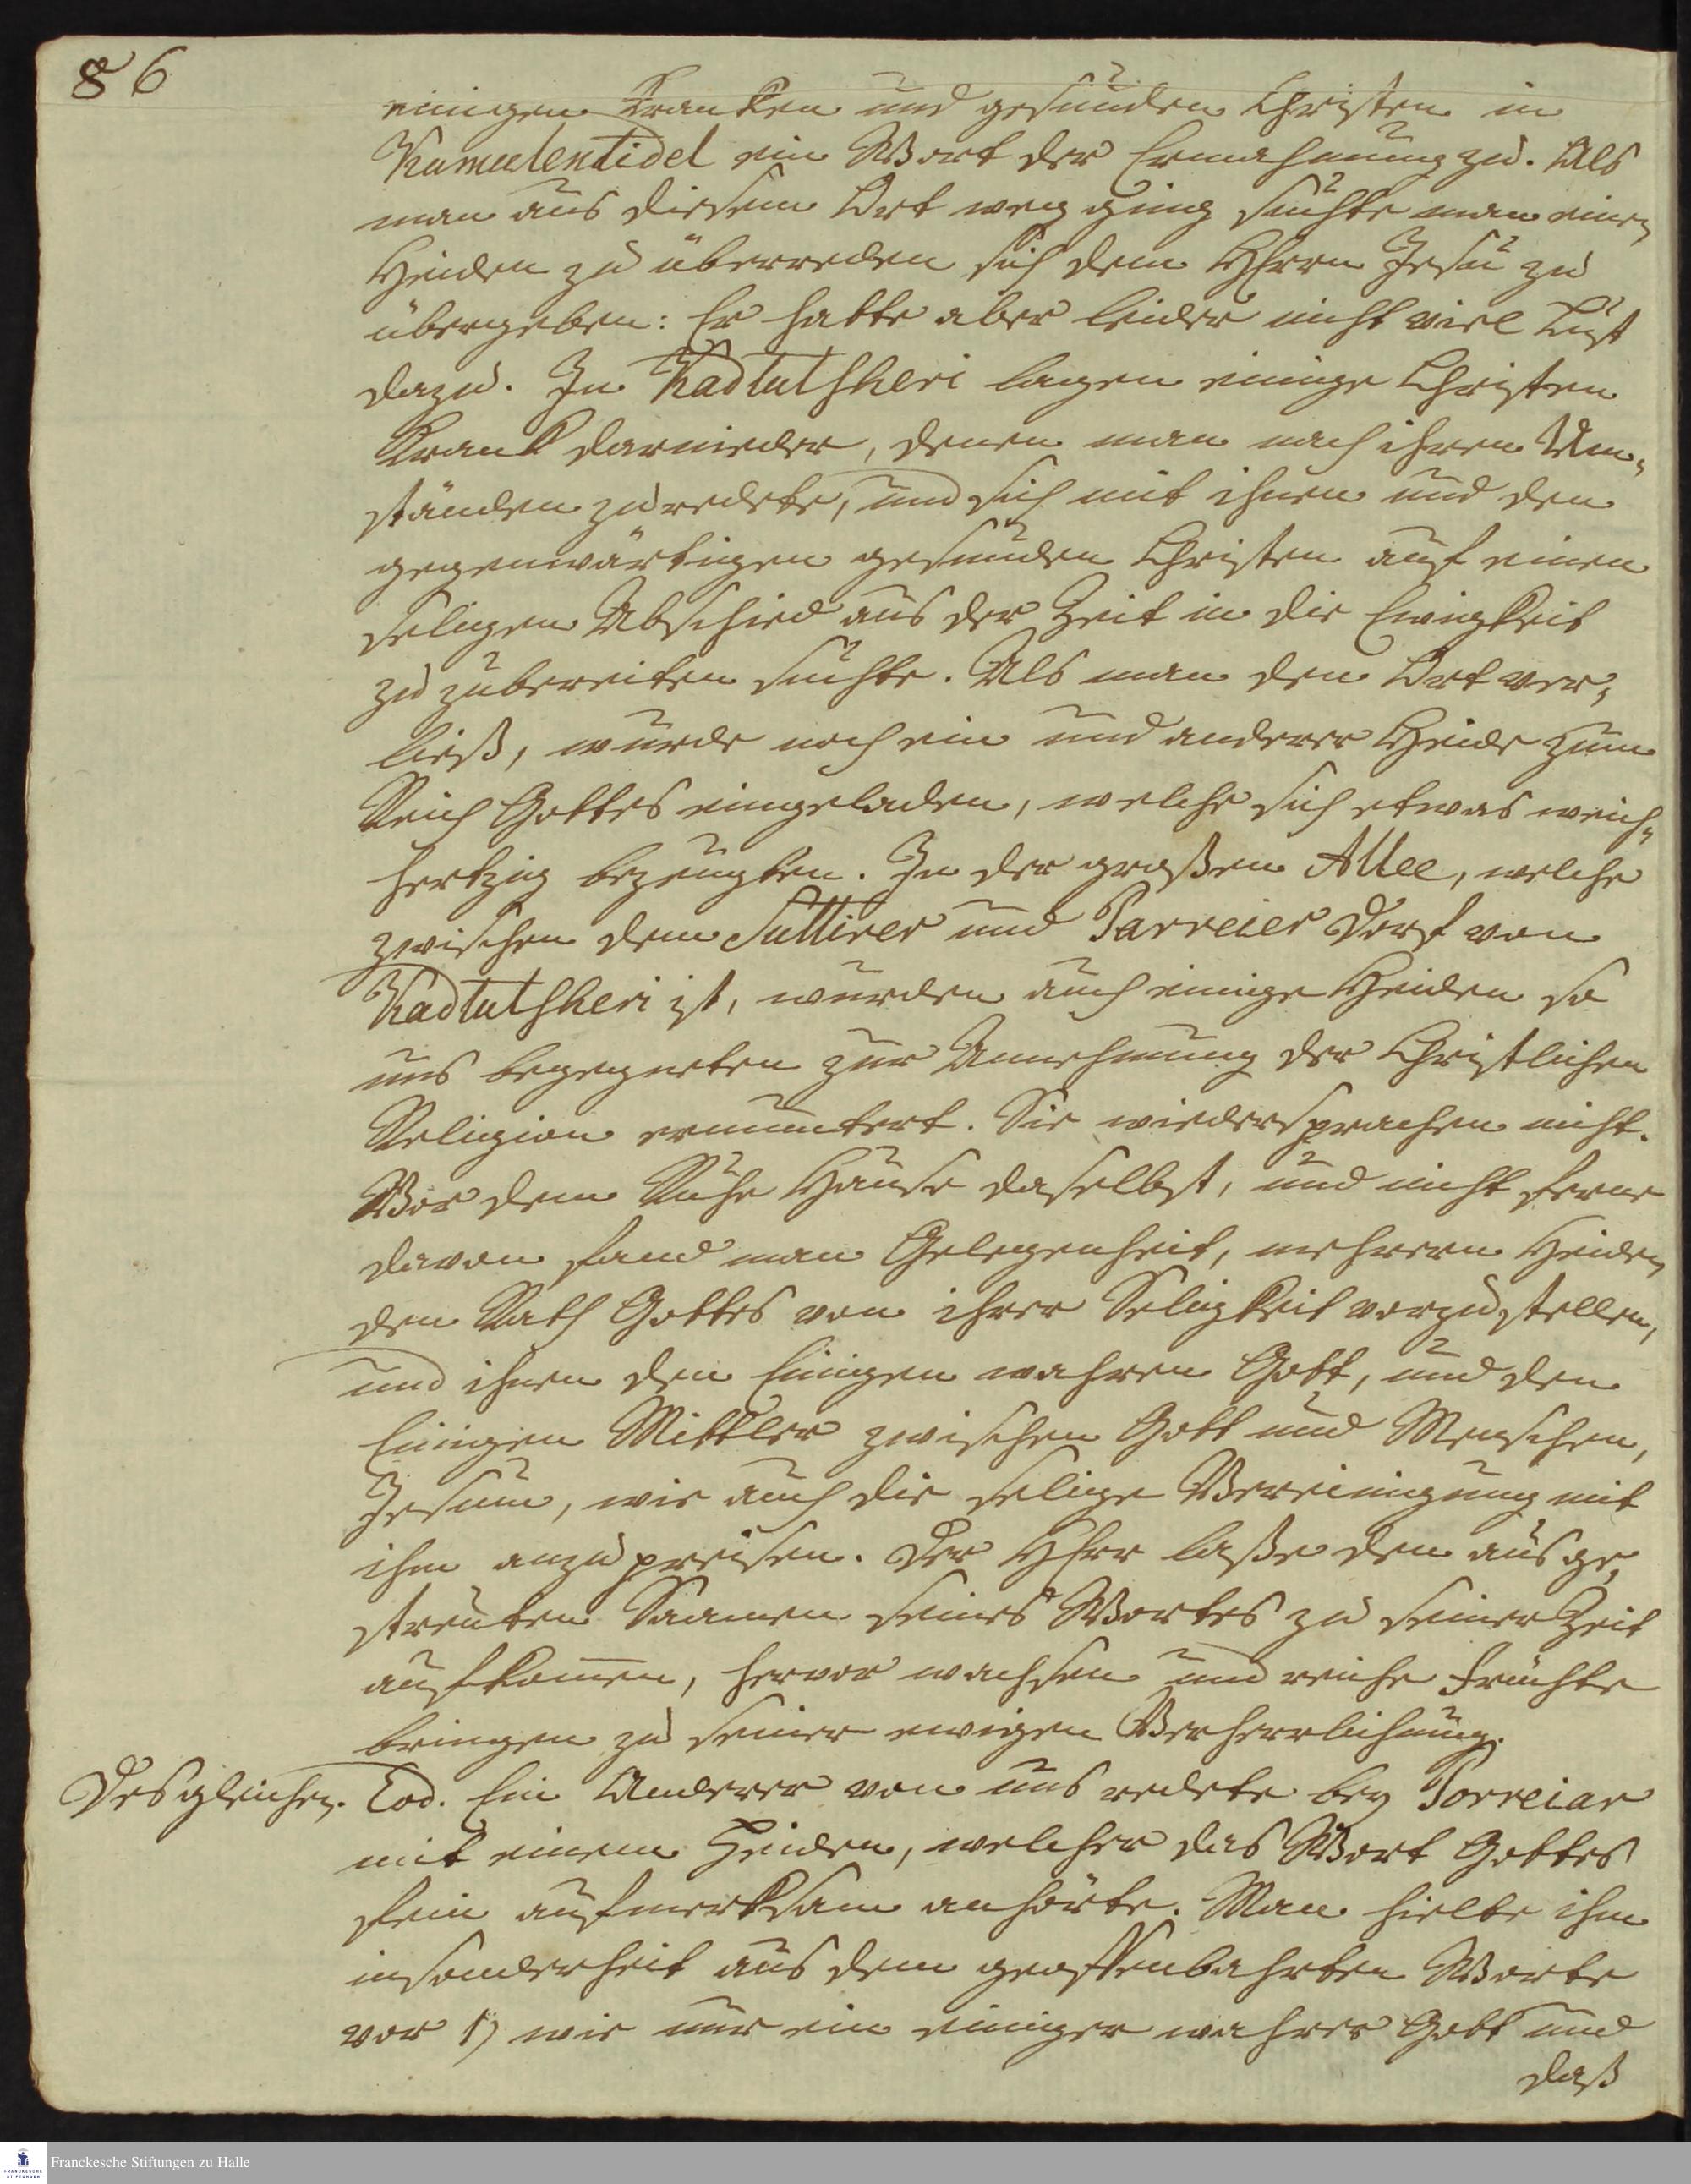 86
einigen Krancken und gesunden Christen in
Kumulentidel ein Wort der Ermahnung zu. Als
man aus diesem Ort weg ging suchte man einen
Heiden zu überreden sich dem HErrn Jesu zu
übergeben: Er hatte aber leider nicht viel Lust
dazu. In Kadtutsheri lagen einige Christen
Kranck darnieder, denen man nach ihren Um„
ständen zuredete, und sich mit ihnen und den
gegenwärtigen gesunden Christen auf einen
seligen Abschied aus der Zeit in die Ewigkeit
zu zubereiten suchte. Als man den Ort ver„
ließ, wurde noch ein und anderer Heide zum
Reich Gottes eingeladen, welche sich etwas weich„
hertzig bezeugten. In der großen Allee, welche
zwischen dem Suttirer und Parreier Dorf von
Kadtutsheri ist, wurden auch einige Heiden so
uns begegneten zur Annehmung der Christlichen
Religion ermuntert. Sie wiedersprachen nicht.
Vor dem Ruhe Hause daselbst, und nicht ferne
davon fand man Gelegenheit, mehrern Heiden
den Rath Gottes von ihrer Seligkeit vorzustellen,
und ihnen den Einigen wahren Gott, und den
Einigen Mittler zwischen Gott und Menschen,
Jesum, wie auch die selige Vereinigung mit
ihm anzupreisen. Der HErr laße den ausge„
streuten Saamen seines Wortes zu seiner Zeit
aufkom̅en, hervor wachsen und reiche Früchte
bringen zu seiner ewigen Verherrlichung.
Desgleichen. Eod. Ein Anderer von uns redete bey Porreiar
mit einem Heiden, welcher das Wort Gottes
fein aufmercksam anhörte. Man hielte ihm
insonderheit aus dem geoffenbahrten Worte
vor 1) wie nur ein einiger wahrer Gott und
daß
Franckesche Stiftungen zu Halle